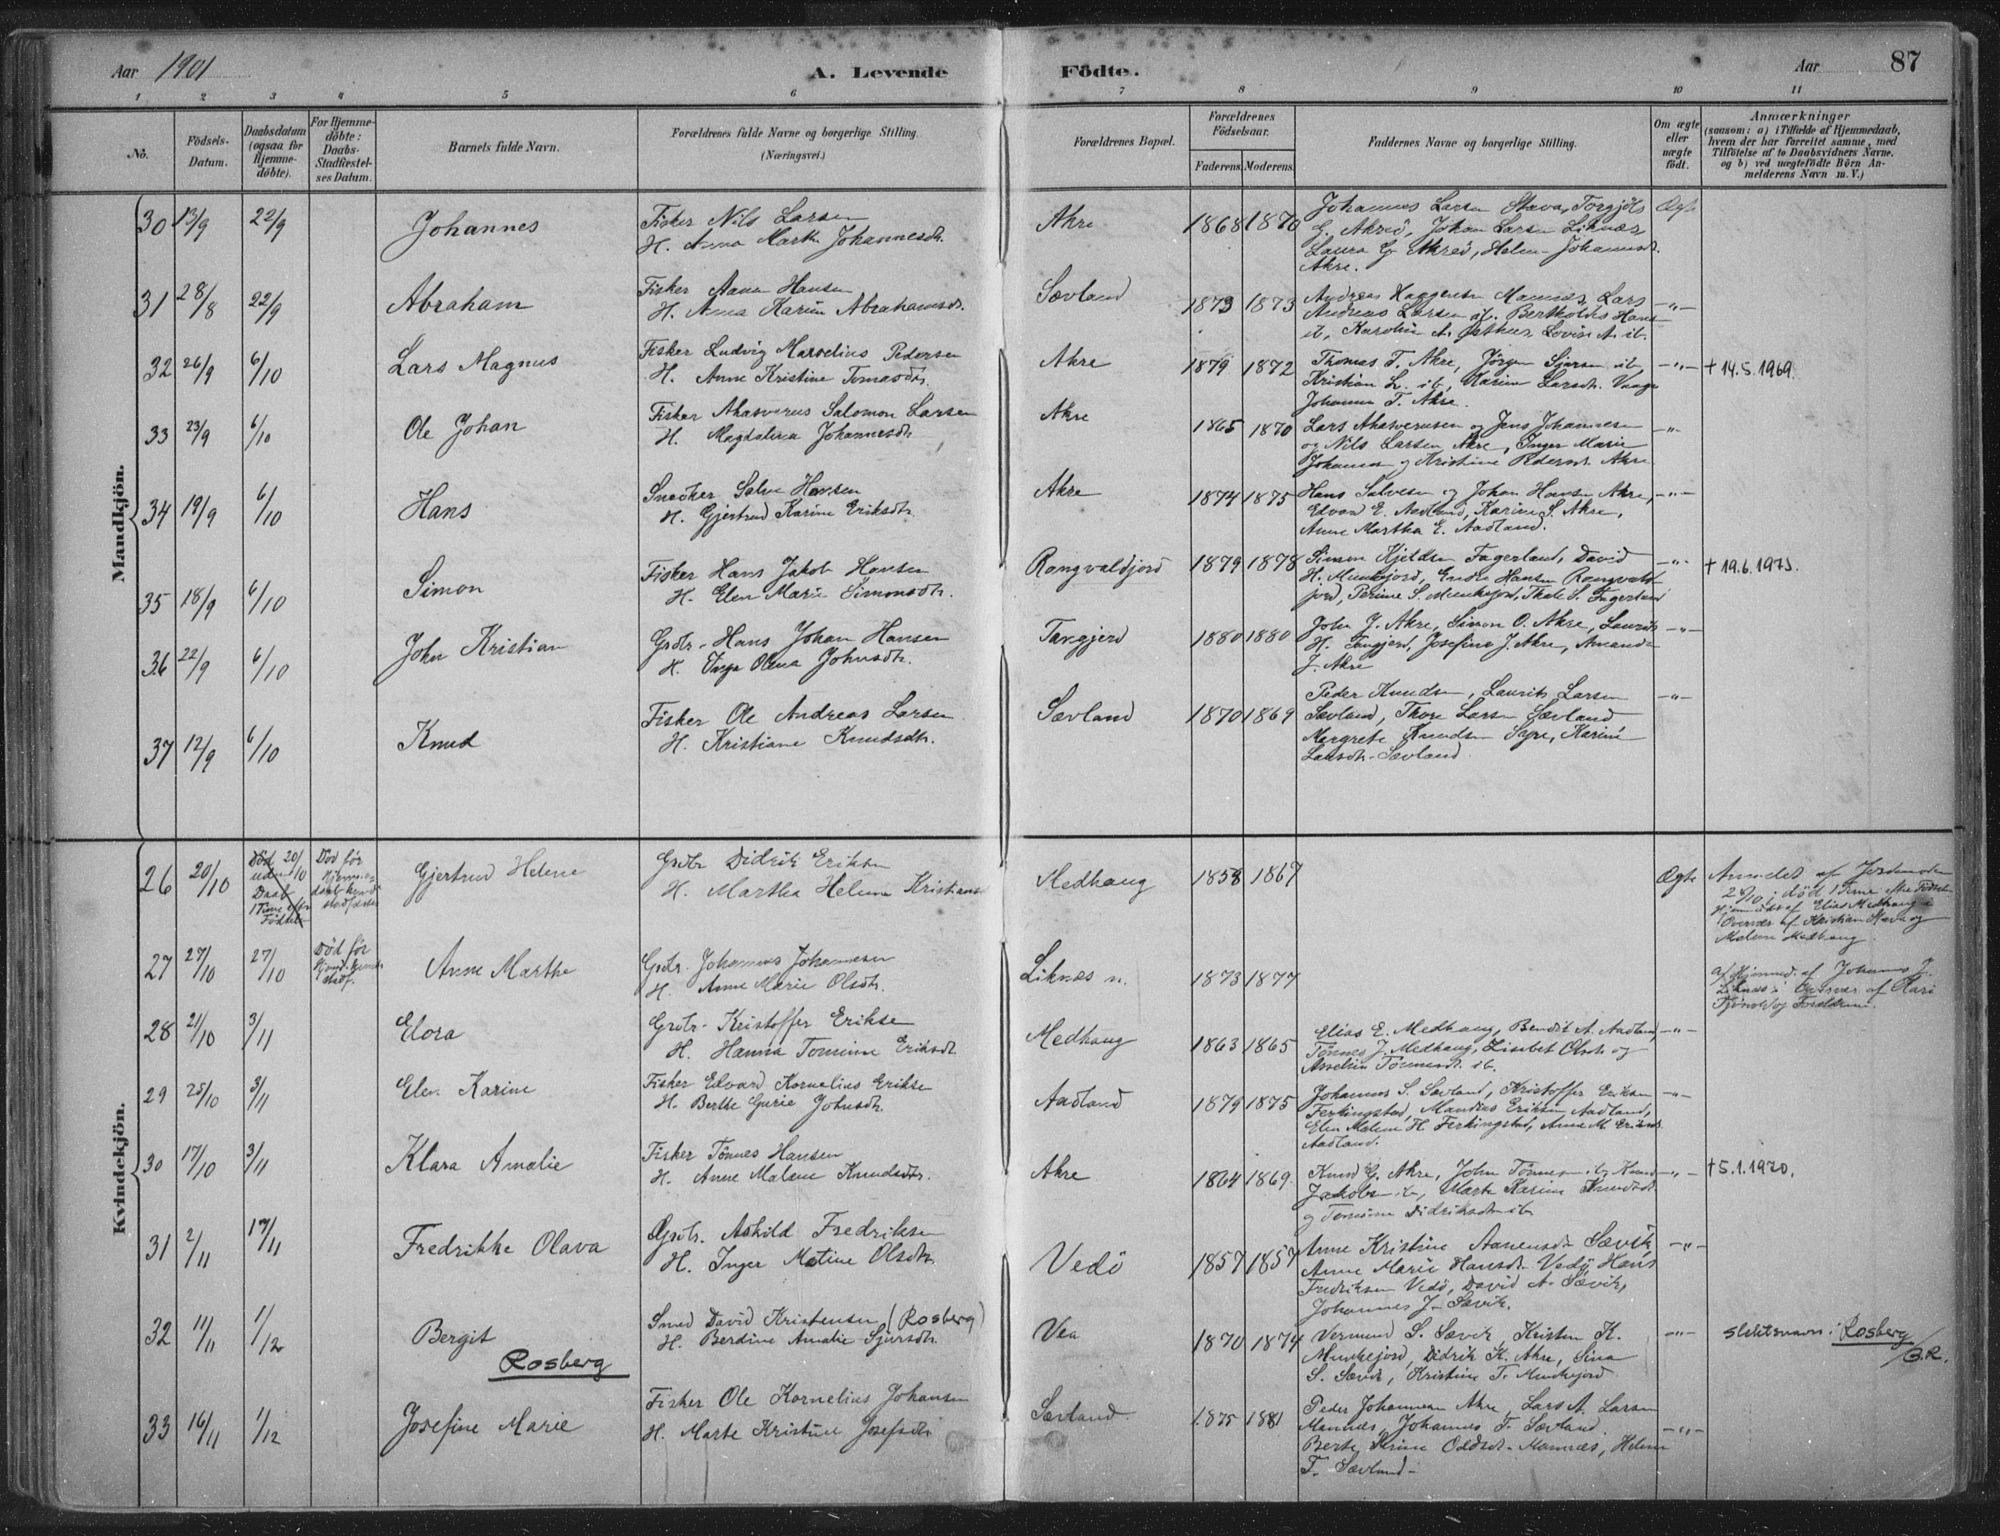 Aar 1901 A. Levende Födte. Aar 87
1 2 3 4 5 6 7 8 9 10 11
No.
Födsels-
Datum.
Daabsdatum
(ogsaa for
Hjemme-
döbte).
For Hjemme-
döbte:
Daabs-
Stadfæstel-
ses Datum.
Barnets fulde Navn.
Forældrenes fulde Navne og borgerlige Stilling.
(Næringsvei.)
Forældrenes Bopæl.
Forældrenes
Födselsaar.
Faderens. Moderens.
Faddernes Navne og borgerlige Stilling.
Om ægte
eller
uægte
født.
Anmærkninger
(saasom: a) i Tilfælde af Hjemmedaab,
hvem der har forrettet samme, med
Tilföielse af to Daabsvidners Navne.
og b) ved uægtefödte Börn An-
melderens Navn m. V.)
Mandkjön.
30 13/9 22/9 Johannes
Fisker Nils Larsen
H. Anna Marthe Johannesdtr.
Akre 1868 1870
Johannes Larsen Stava, Torgjels
G. Akreö, Johan Larsen Liknæs,
Laura G. Akreö, Helene Johannesdt.
Akre.
Ægte
31 28/8 22/9 Abraham
Fisker Aanen Hansen
H. Anna Karine Abrahamsdtr.
Sævland 1873 1873
Andreas Mannes, Lars
Andreas Larsen Bertholdus Hans
ib, Karoline A. Lovise A. ib.
-"-
32 26/9 6/10 Lars Magnus
Fisker Ludvig Marselius Pedersen
H. Anne Kristine Tomasdtr.
Akre 1879 1872
Thomas T. Akre, Jørgen ib
Kristian L. ib, Karine Larsdt. Vaage
Johanna T. Akre.
-"- + 14.5.1969.
33 23/9 6/10 Ole Johan
Fisker Ahasverus Salomon Larsen
H. Magdalena Johannesdtr
Akre 1865 1870
Lars Ahasverusen og Jens Johannesen
og Nils Larsen Akre, Inger Marie
Johanna og Kristine Pedersdt. Akre
-"-
34 19/9 6/10 Hans
Snedker Salve Hansen
H. Gjertrud Karine Eriksdtr.
Akre 1874 1875
Hans Salvesen og Johan Hansen Akre,
Edvard E. Aadland, Karine S. Akre,
Anne Martha E. Aadland.
-"-
35 18/9 6/10 Simon
Fisker Hans Jakob Hansen
H. Elen Marie Simonsdtr.
Rongvaldjord 1879 1878
Simon Kjeldsen Fagerland, David
H. Munkejord, Endre Hansen Rongvald-
jord, Perine S. Munkejord, Thale S. Fagerland
-"- + 19.6.1973.
36 22/9 6/10 John Kristian
Grdbr. Hans Johan Hansen
H. Inga Olena Johnsdtr.
Tangjerd 1880 1880
John J. Akre, Simon O. Akre, Laurits
H. Tangjerd, Josefine J. Akre, Amanda
J. Akre
-"-
37 12/9 6/10 Knud
Fisker Ole Andreas Larsen
H. Kristiane Knudsdtr.
Sævland 1870 1869
Peder Knudsen, Laurits Larsen
Sævland, Thore Larsen Sævland
Margrete Knudsen Sagre, Karine
Larsdtr. Sævland.
-"-
Kvindekjön.
26 20/10
Död 20/10
uden
Daab
1 Time efter
Födsele
Död før
Hjemme-
Gjertrud Helene
Grdbr Didrik Eriksen
H. Martha Helene Kristians
Medhaug 1858 1867 Ægte
Anmeldt af Jordemoder
28/10; död 1 Time efter Födsele
Hjemmedöbt af Elias Medhaug i
Overvær af Kristian Stava og
Malene Medhaug.
27 27/10 27/10
Död før
Anne Marthe
Grdbr. Johannes Johannesen
H. Anne Marie Olsdtr.
Liknæs n. 1873 1877
Hjemmed. af Johannes J.
Liknæs i Overvær af Kari
og Forældrene.
28 21/10 3/11 Elora
Grdbr. Kristoffer Eriksen
H. Hanna Tomine Eriksdtr.
Medhaug 1863 1865
Elias E. Medhaug, Bendik A. Aadland,
Tønnes J. Medhaug, Lisebet Olsdt. og
Anseline Tönnesdt. ib.
-"-
29 25/10 3/11 Elen Karine
Fisker Edvard Kornelius Eriksen
H. Berthe Gurie Johnsdtr.
Aadland 1879 1875
Johannes S. Sævland, Kristoffer Eriksen
Ferkingstad, Mandius Eriksen Aadland,
Elen Malene H. Ferkingstad, Anne M. Eriksdt
Aadland.
-"-
30 17/10 3/11 Klara Amalie
Fisker Tönnes Hansen
H. Anne Malene Knudsdtr.
Akre 1864 1869
Knud G. Akre, John Tönnesen ib, Knud
Jakobsen ib, Marte Karine Knudsdt
og Tomine Didriksdtr ib
-"- + 5.1.1970.
31 2/11 17/11 Fredrikke Olava
Grdbr. Askild Fredriksen
H. Inger Matine Olsdtr.
Vedö 1857 1857
Anne Kristine Aanensdt. Sævik
Anne Marie Hansdt. Vedö Hans
Fredriksen Vedö, David A. Sævik,
Johannes J. Sævik.
-"-
32 11/11 1/12 Bergit
Rosberg
Smed David Kristensen (Rosberg)
H. Berdine Amalie Sjursdtr.
Vea 1870 1874
Vermund S. Sævik, Kristen K.
Munkejord, Didrik K. Akre, Sina
S. Sævik, Kristine T. Munkejord
-"-
slektsnavn: Rosberg
/G.R.
33 16/11 1/12 Josefine Marie
Fisker Ole Kornelius Johansen
H. Marte Kristine Josefsdtr.
Sævland. 1875 1881
Peder Johannesen Akre, Lars A. Larsen
Mannes, Johannes T. Sævland.
Berte Stine Oddsdt. Mannæs, Helene
T. Sævland.
-"-